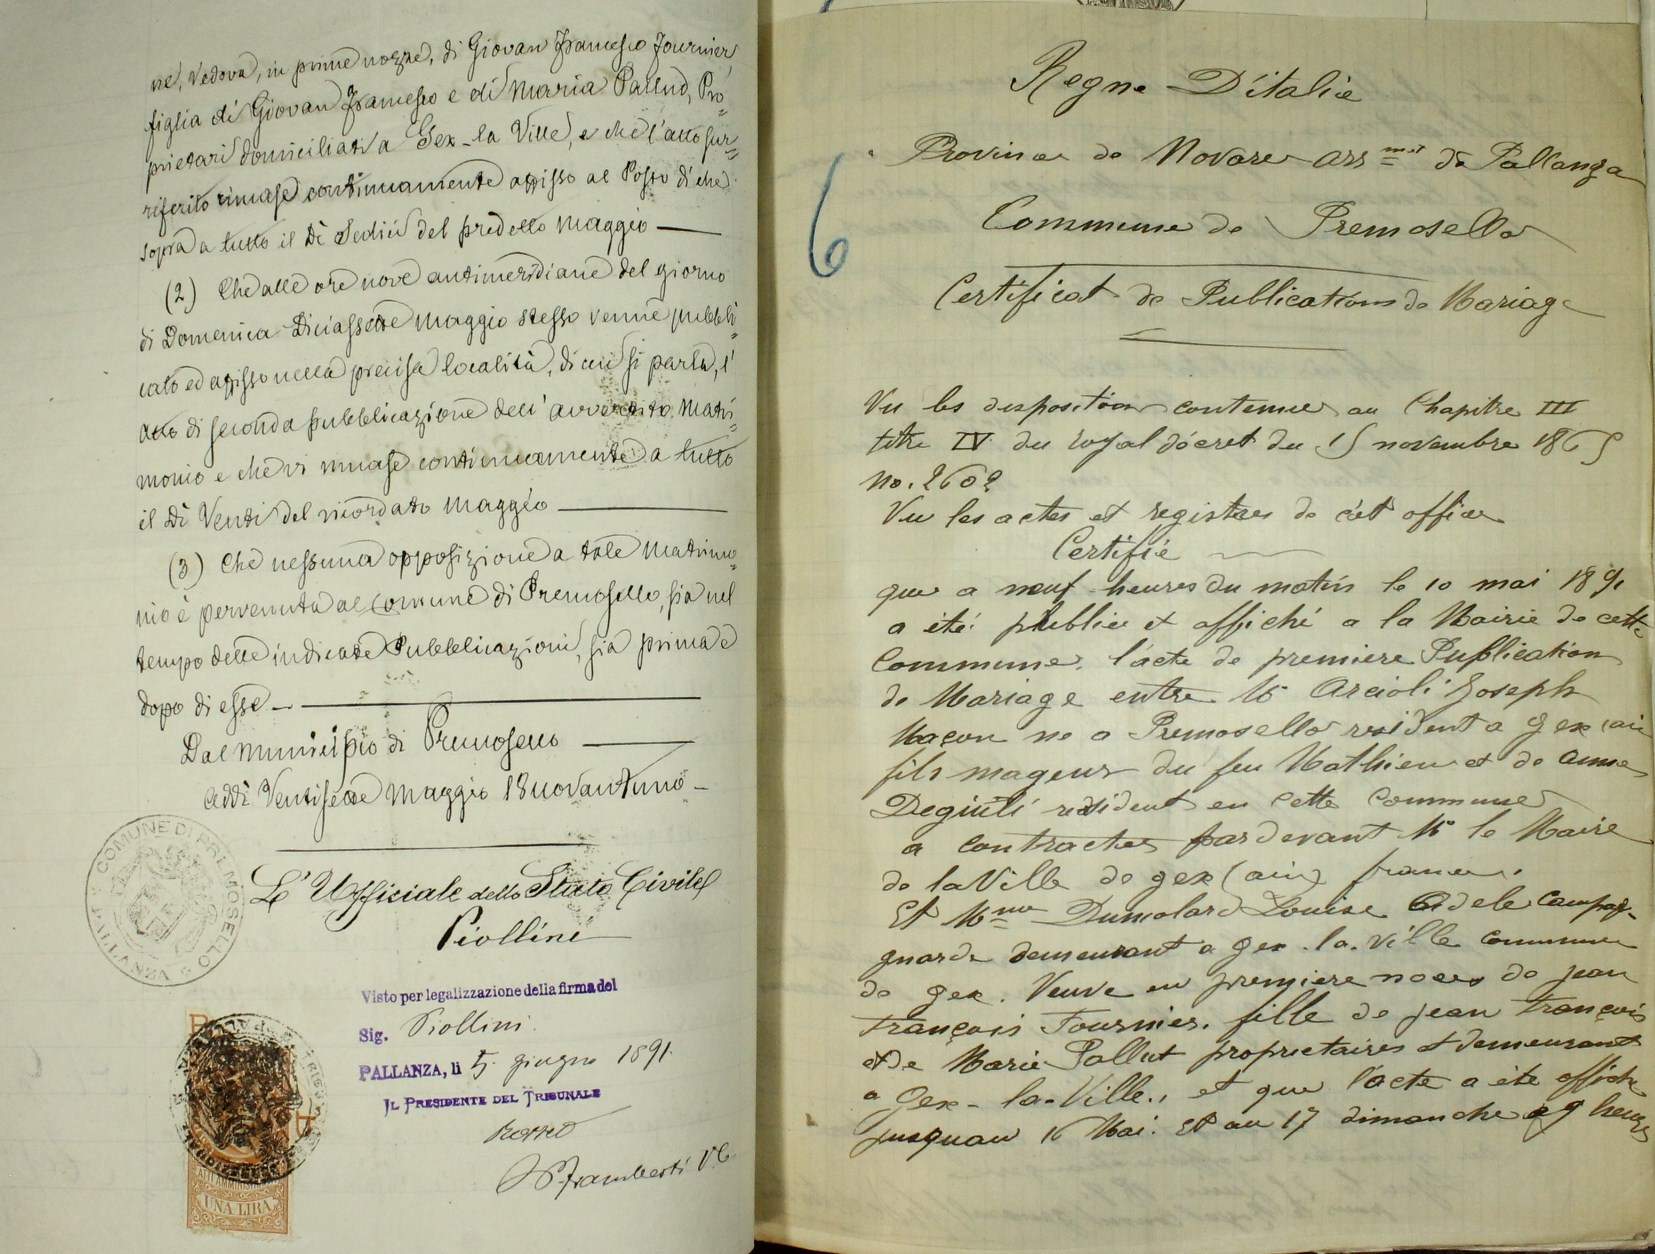 ne, Vedova, in prime nozze, di Giovan Francesco Fournier,
figlia di Giovan Francesco e di Maria Pallud, Pro=
prietari domiciliati a Gex-la Ville, e che l'atto sur=
riferito rimase continuamente affisso al Posto di che
sopra a tutto il Dì Sedici del predetto Maggio —
(2) Che alle ore nove antimeridiane del giorno
di Domenica Diciassette Maggio stesso venne pubbli=
cato ed affisso nella precisa località, di cui si parla, l'
atto di seconda pubblicazione dell' avvertito Matri=
monio e che vi rimase continuamente a tutto
il Dì Venti del ricordato Maggio —
(3) Che nessuna opposizione a tale Matrimo=
nio è pervenuta al Comune di Premosello, sia nel
tempo delle indicate Pubblicazioni, sia prima e
dopo di esse —
Dal Municipio di Premosello —
Addì Ventisette Maggio 18novantuno —
L'Ufficiale dello Stato Civile
Piollini
COMUNE DI PREMOSELLO
PALLANZA
Visto per legalizzazione della firma del
Sig. Piollini
PALLANZA, li 5 giugno 1891
IL PRESIDENTE DEL TRIBUNALE
ATTI AMMINIS
UNA LIRA
6
Regne D'italie
Province de Novare arr=met de Pallanza
Commune de Premosello
Certificat de Publications de Mariage
Vu les disposition contenues au Chapitre III
titre IV du royal décret du 15 novembre 1865
No. 2602
Vu les actes et registres de cèt office
Certifié
que a neuf heures du matin le 10 mai 1891
a été publiée et affiché a la Mairie de cette
Commune, l'acte de premiere Publication
de Mariage entre Mr Arcioli Joseph
Maçon ne a Premosello resident a gex (ain
fils mageur du feu Mathieu et de anne
Degiuli resident en cette Commune
a contracter par devant Mr le Maire
de la Ville de gex (ain) france.
Et Mme Dumolard Louise Adele Campag-
narde demeurant a gex-la-Ville Commune
de gex. Veuve en premiere noces de jean
françois Fournier, fille de jean françois
et de Marie Pallut proprietaires et demeurant
a Gex-la-Ville, et que l'acte a éte affiché
jusquau 16 Mai. Et au 17 dimanche a 9 heures